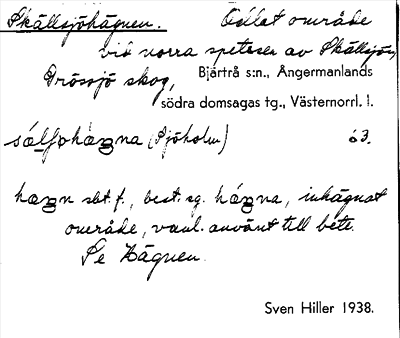 Skällsjöhägnen. Odlat område
vid norra spetsen av Skällsjön,
Drössjö skog, Bjärtrå s:n., Ångermanlands
södra domsagas tg., Västernorrl. l.
(Sjöholm) 63.
sbt. f., best. sg. inhägnat
område, vanl. använt till bete.
Se Hägnen.
Sven Hiller 1938.